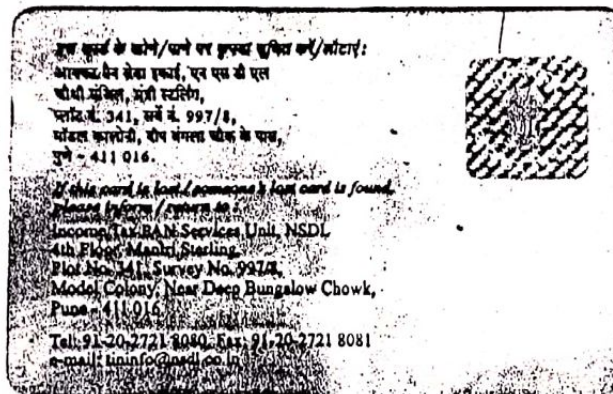 इस कार्ड के खोने/पाने पर कृपया सूचित करें/लौटाएं:
आयकर पैन सेवा इकाई, एन एस डी एल
चौथी मंजिल, मंत्री स्टर्लिंग,
प्लॉट नं. 341, सर्वे नं. 997/8,
मॉडल कालोनी, दीप बंगला चौक के पास,
पुणे - 411 016.
If this card is lost / someone's lost card is found,
please inform / return to :
Income Tax PAN Services Unit, NSDL
4th Floor, Mantri Sterling,
Plot No. 341, Survey No. 997/8,
Model Colony, Near Deep Bungalow Chowk,
Pune - 411 016.
Tel: 91-20-2721 8080, Fax: 91-20-2721 8081
e-mail: tininfo@nsdl.co.in